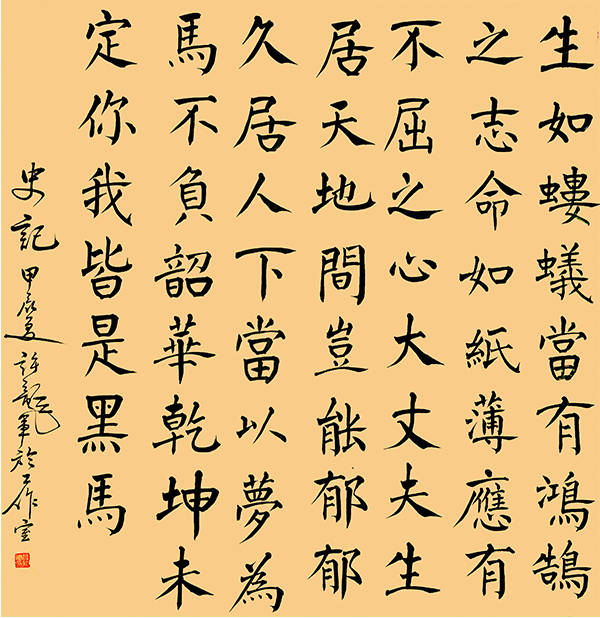 生如螻蟻當有鴻鵠
之志命如紙薄應有
不屈之心大丈夫生
居天地間豈能郁郁
久居人下當以夢為
馬不負韶華乾坤未
定你我皆是黑馬
史記 甲辰夏 許龍軍於工作室